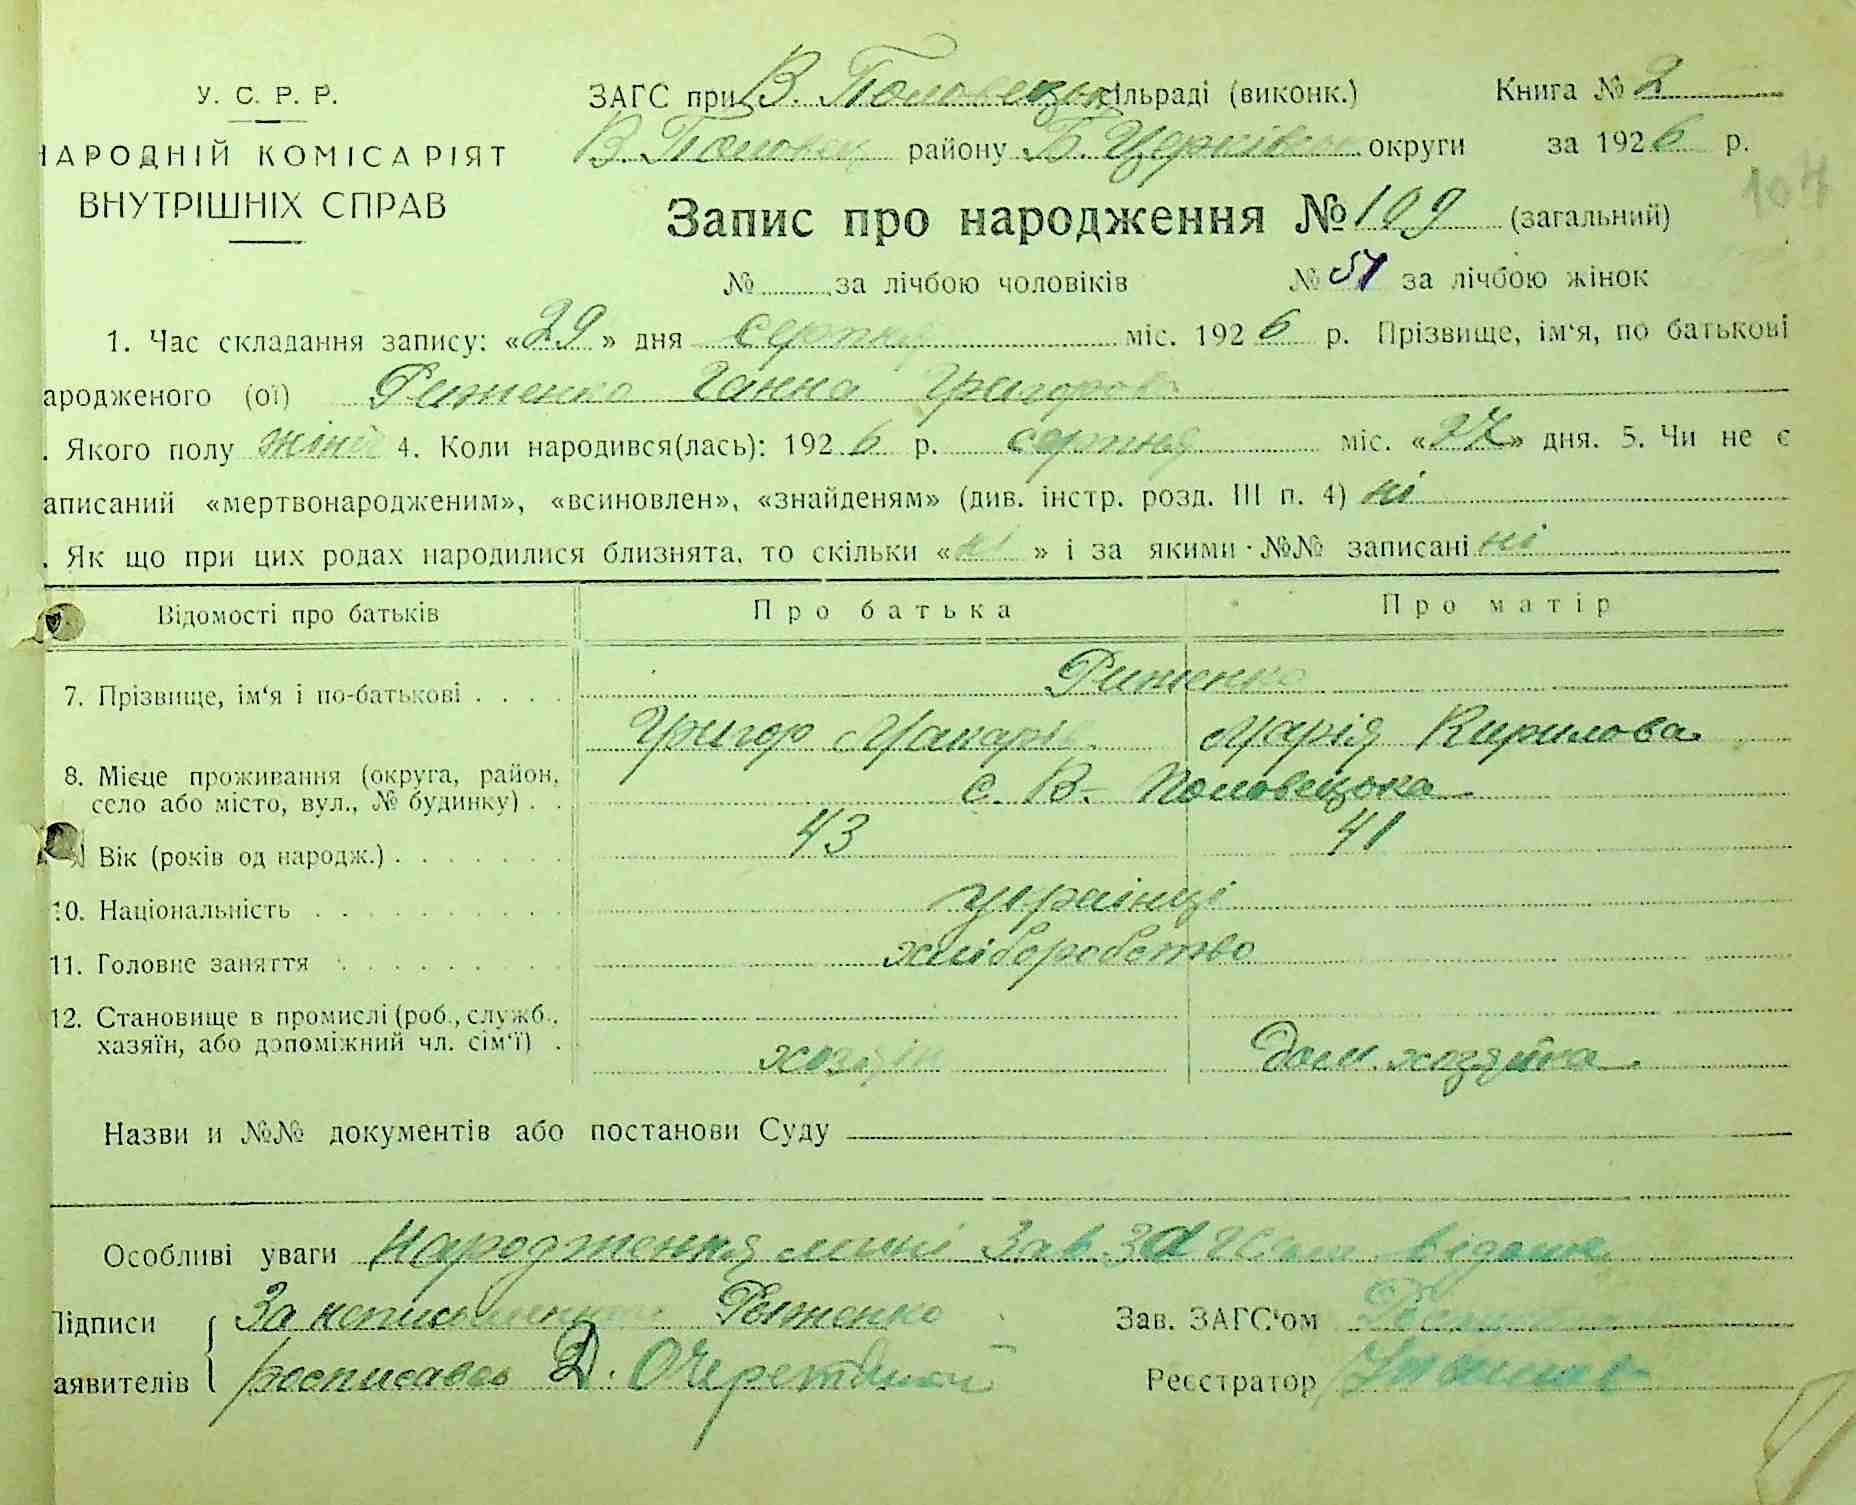 У. С. Р. Р.
НАРОДНІЙ КОМІСАРІЯТ
ВНУТРІШНІХ СПРАВ
ЗАГС при В. Половецьк сільраді (виконк.) Книга № 2
В. Половец району Б. Церківсь округи за 1926 р.
104
Запис про народження № 109 (загальний)
№ за лічбою чоловіків № 51 за лічбою жінок
1. Час складання запису: «29» дня серпня міс. 1926 р. Прізвище, ім'я, по батькові
ародженого (ої) Риженко Ганна Григоров
. Якого полу жіноч 4. Коли народився(лась): 1926 р. серпня міс. «27» дня. 5. Чи не є
аписаний «мертвонародженим», «всиновлен», «знайденям» (див. інстр. розд. III п. 4) ні
. Як що при цих родах народилися близнята, то скільки «ні» і за якими №№ записані ні
Відомості про батьків Про батька Про матір
7. Прізвище, ім'я і по-батькові Риженко
Григор Макарів Марія Кирилова
8. Місце проживання (округа, район,
село або місто, вул., № будинку) с. В. Половецька
Вік (років од народж.) 43 41
10. Національність українці
11. Головне заняття хліборобство
12. Становище в промислі (роб., служб.,
хазяїн, або допоміжний чл. сім'ї) хозяїн дом. хозяйка
Назви и №№ документів або постанови Суду
Особливі уваги Народження мині Зав. ЗАГСом відоме
Підписи За неписьменого Рыженко Зав. ЗАГС'ом
аявителів росписавсь Д. Очеретяной Реєстратор